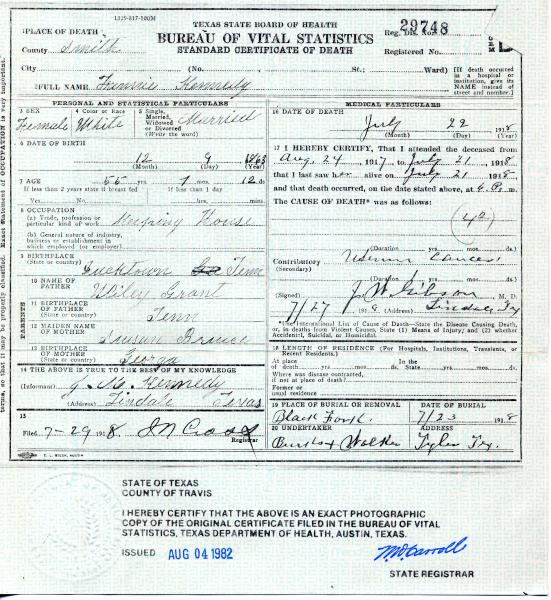 1329-817-100M
TEXAS STATE BOARD OF HEALTH
BUREAU OF VITAL STATISTICS
STANDARD CERTIFICATE OF DEATH
Reg. Dis. No. 29748
Registered No.
1 PLACE OF DEATH
County Smith
City (No. St.; Ward)
(If death occurred in a hospital or institution, give its NAME instead of street and number.)
2 FULL NAME Fannie Kennedy
PERSONAL AND STATISTICAL PARTICULARS
3 SEX Female
4 Color or Race White
5 Single, Married, Widowed or Divorced (Write the word) Married
6 DATE OF BIRTH
12 9 1863
(Month) (Day) (Year)
7 AGE 55 yrs 7 mos. 12 ds
If less than 2 years state if breast fed If less than 1 day
Yes. No. hrs. mins.
8 OCCUPATION
(a) Trade, profession or particular kind of work Keeping House
(b) General nature of industry, business or establishment in which employed (or employer)
9 BIRTHPLACE
(State or country) Ducktown Tenn
PARENTS
10 NAME OF FATHER Wiley Grant
11 BIRTHPLACE OF FATHER (State or country) Tenn
12 MAIDEN NAME OF MOTHER Susan Bruce
13 BIRTHPLACE OF MOTHER (State or country) Georga
14 THE ABOVE IS TRUE TO THE BEST OF MY KNOWLEDGE
(Informant) Kennedy
(Address) Lindale Texas
15
Filed 7-29 1918. Registrar
MEDICAL PARTICULARS
16 DATE OF DEATH
July 22 1918
(Month) (Day) (Year)
17 I HEREBY CERTIFY, That I attended the deceased from
Aug, 24, 1917, to July 21, 1918
that I last saw her alive on July 21 1918
and that death occurred, on the date stated above, at 4. P. m.
The CAUSE OF DEATH* was as follows:
42
(Duration yrs. mos. ds.
Contributory (Secondary) Cancer
(Duration yrs. mos. ds.
(Signed) J. W. Gibson, M. D.
7/27, 191 (Address) Lindale, Tx
*The International List of Cause of Death—State the Disease Causing Death, or, in deaths from Violent Causes, State (1) Means of Injury; and (2) whether Accidental, Suicidal, or Homicidal.
18 LENGTH OF RESIDENCE (For Hospitals, Institutions, Transients, or Recent Residents.)
At place of death yrs. mos. ds. In the State yrs. mos. ds.
Where was disease contracted, if not at place of death?
Former or usual residence
19 PLACE OF BURIAL OR REMOVAL DATE OF BURIAL
Black Fork. 7/23 1918
20 UNDERTAKER ADDRESS
Walker Tyler Tex.
STATE OF TEXAS
COUNTY OF TRAVIS
I HEREBY CERTIFY THAT THE ABOVE IS AN EXACT PHOTOGRAPHIC
COPY OF THE ORIGINAL CERTIFICATE FILED IN THE BUREAU OF VITAL
STATISTICS, TEXAS DEPARTMENT OF HEALTH, AUSTIN, TEXAS.
ISSUED AUG 04 1982
STATE REGISTRAR